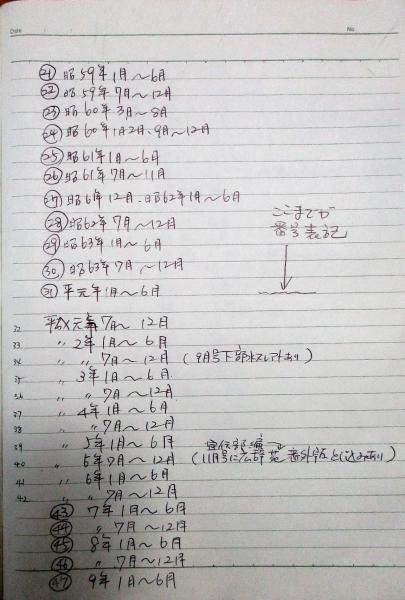 Date No.
㉑ 昭59年1月〜6月
㉒ 昭59年7月〜12月
㉓ 昭60年3月〜8月
㉔ 昭60年1月2月、9月〜12月
㉕ 昭61年1月〜6月
㉖ 昭61年7月〜11月
㉗ 昭61年12月.昭62年1月〜6月
㉘ 昭62年7月〜12月
㉙ 昭63年1月〜6月
㉚ 昭63年7月〜12月
㉛ 平元年1月〜6月
ここまでが
番号表記
32 平成元年7月〜12月
33 〃 2年1月〜6月
34 〃 〃 7月〜12月 (9月号下部
35 〃 3年1月〜6月
36 〃 〃 7月〜12月
37 〃 4年1月〜6月
38 〃 〃 7月〜12月
39 〃 5年1月〜6月
40 〃 5年7月〜12月 (11月号に広辞苑番外版とじ込みあり)
41 〃 6年1月〜6月
42 〃 〃 7月〜12月
㊸ 7年1月〜6月
㊹ 〃 7月〜12月
㊺ 8年1月〜6月
㊻ 〃 7月〜12月
㊼ 9年1月〜6月